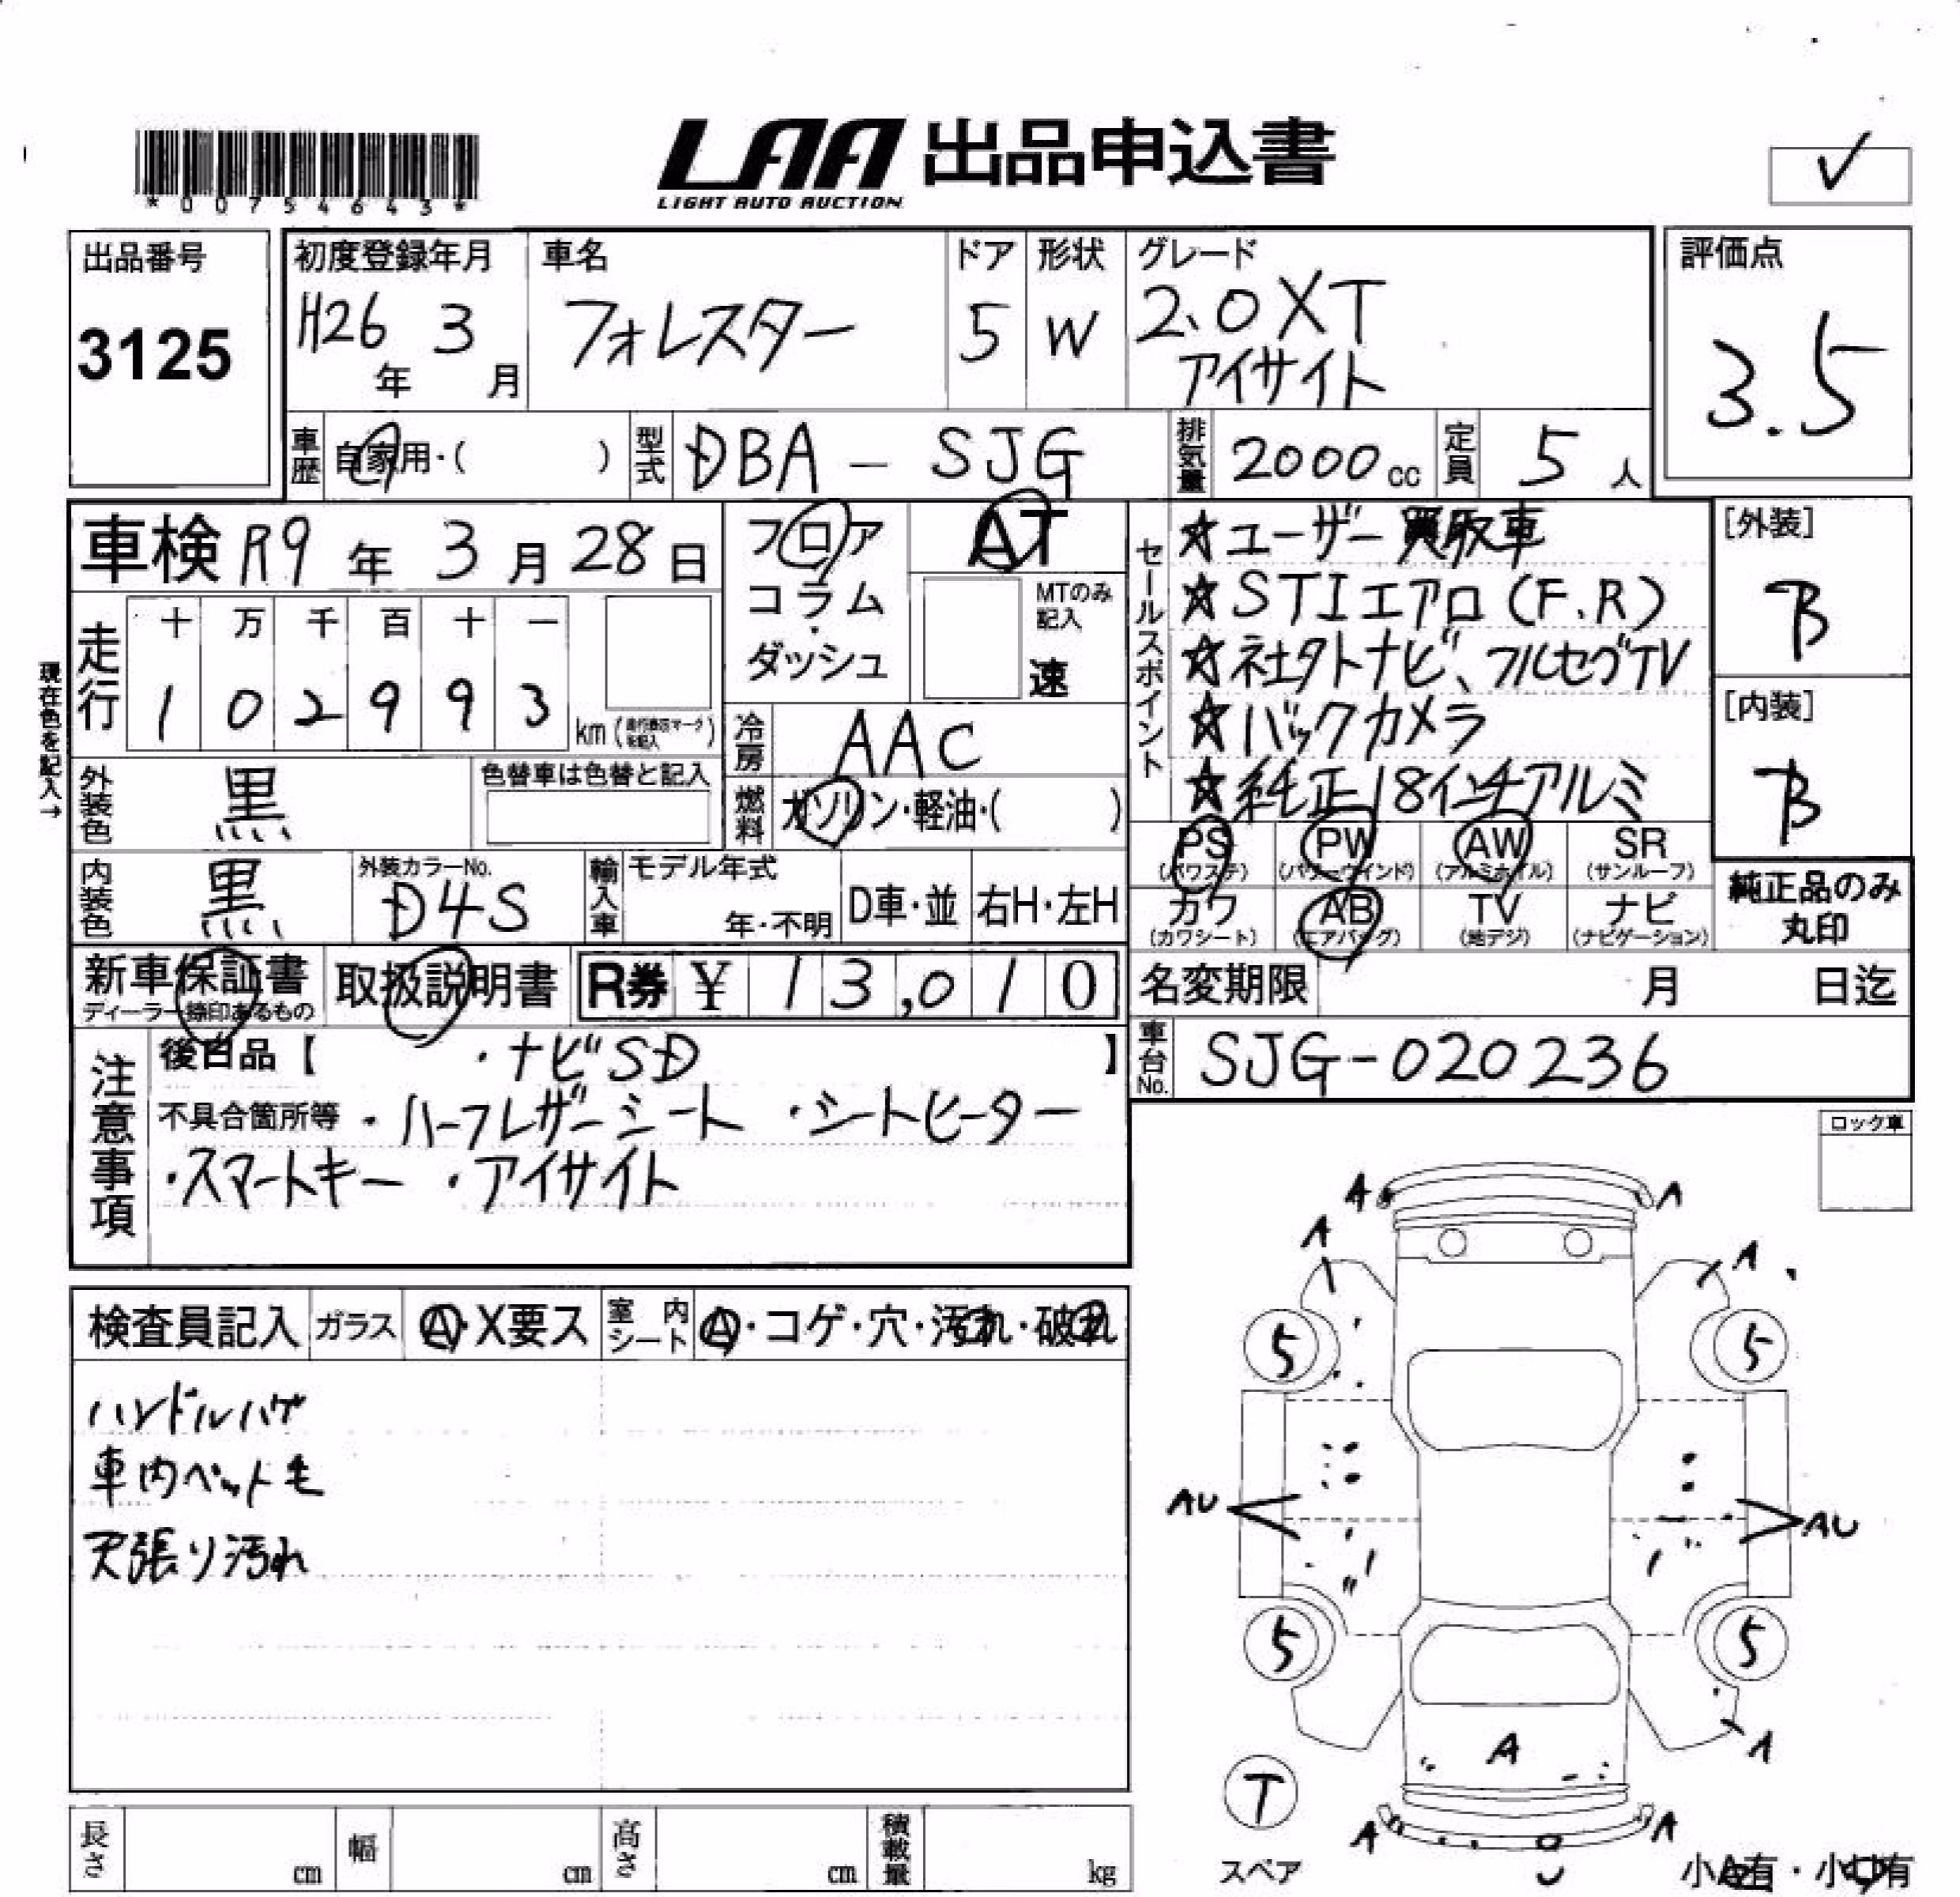 *00754643*
LAA 出品申込書
LIGHT AUTO AUCTION
✓
出品番号
3125
初度登録年月
H26年 3月
車名
フォレスター
ドア
5
形状
W
グレード
2.0XT
アイサイト
評価点
3.5
車歴
自家用・( )
型式
DBA - SJG
排気量
2000cc
定員
5人
車検 R9年 3月 28日
フロア
コラム
・
ダッシュ
AT
MTのみ記入
速
セールスポイント
☆ユーザー買取車
☆STIエアロ(F.R)
☆社外ナビ、フルセグTV
☆バックカメラ
☆純正18インチアルミ
[外装]
B
[内装]
B
現在色を記入→
走行
十 万 千 百 十 一
1 0 2 9 9 3
km
冷房
AAC
外装色
黒
色替車は色替と記入
燃料
ガソリン・軽油・( )
PS
(パワステ)
PW
(パワーウインド)
AW
(アルミホイル)
SR
(サンルーフ)
内装色
黒
外装カラーNo.
D4S
輸入車
モデル年式
年・不明
D車・並
右H・左H
カワ
(カワシート)
AB
(エアバッグ)
TV
(地デジ)
ナビ
(ナビゲーション)
純正品のみ
丸印
新車保証書
ディーラー捺印あるもの
取扱説明書
R券 ¥ 13,010
名変期限 月 日迄
車台No.
SJG-020236
注意事項
後日品【 ・ナビSD 】
不具合箇所等 ・ハーフレザーシート ・シートヒーター
・スマートキー ・アイサイト
ロック車
検査員記入
ガラス
A・X要ス
室内シート
A・コゲ・穴・汚れ・破れ
ハンドルハゲ
車内ペット毛
天張り汚れ
A A
A A
5 5
AU AU
5 5
A
A
T
スペア
A A
小A有・小U有
長さ cm
幅 cm
高さ cm
積載量 kg